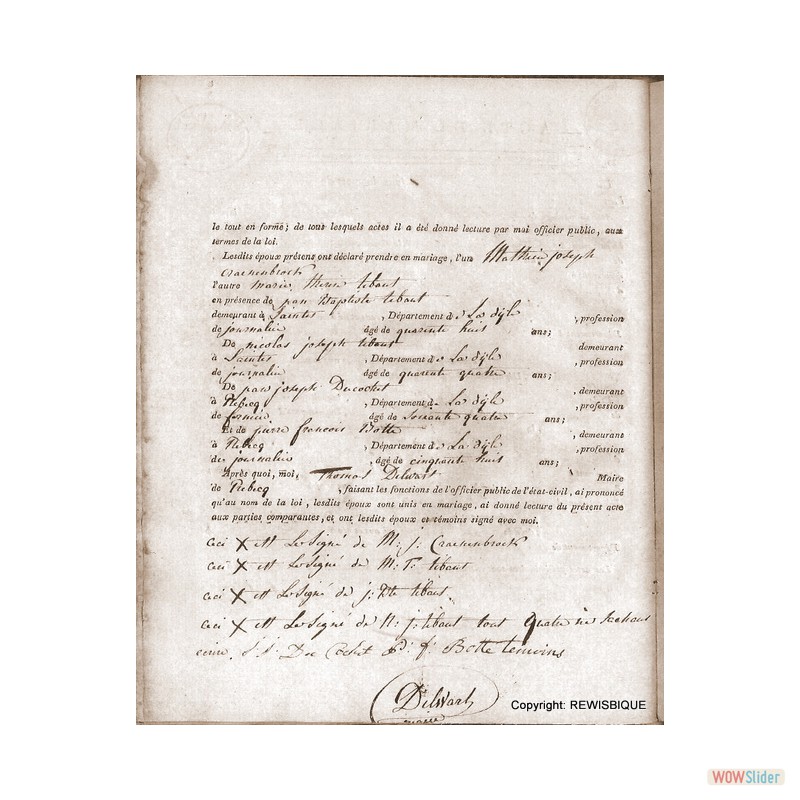 le tout en forme; de tous lesquels actes il a été donné lecture par moi officier public, aux
termes de la loi.
Lesdits époux présens ont déclaré prendre en mariage, l'un Mathieu joseph
Craenenbrock
l'autre marie therese libaut
en présence de jean Baptiste libaut
demeurant à Saintes, Département de La dyle, profession
de journalier âgé de quarente huit ans;
De nicolas joseph libaut demeurant
à Saintes, Département de La dyle, profession
de journalier âgé de quarente quatre ans;
De joseph Ducochet, demeurant
à Rebecq, Département de La dyle, profession
de fermier âgé de Soixante quatre ans;
Et de pierre francois Botte, demeurant
à Rebecq, Département de La dyle, profession
de journalier, âgé de cinquante huit ans;
Après quoi, moi, Thomas Delwart Maire
de Rebecq, faisant les fonctions de l'officier public de l'état-civil, ai prononcé
qu'au nom de la loi, lesdits époux sont unis en mariage, ai donné lecture du présent acte
aux parties comparantes, et ont lesdits époux et témoins signé avec moi.
ceci X est Le Signé de M: j: Craenenbrock
ceci X est Le Signé de M: T: libaut
ceci X est Le Signé de j: Bte libaut.
ceci X est Le Signé de N: j: libaut tout quatre ne sachant
ecrire. Du Cochet f: Botte temoins
Delwart
maire
Copyright: REWISBIQUE
WOWSlider